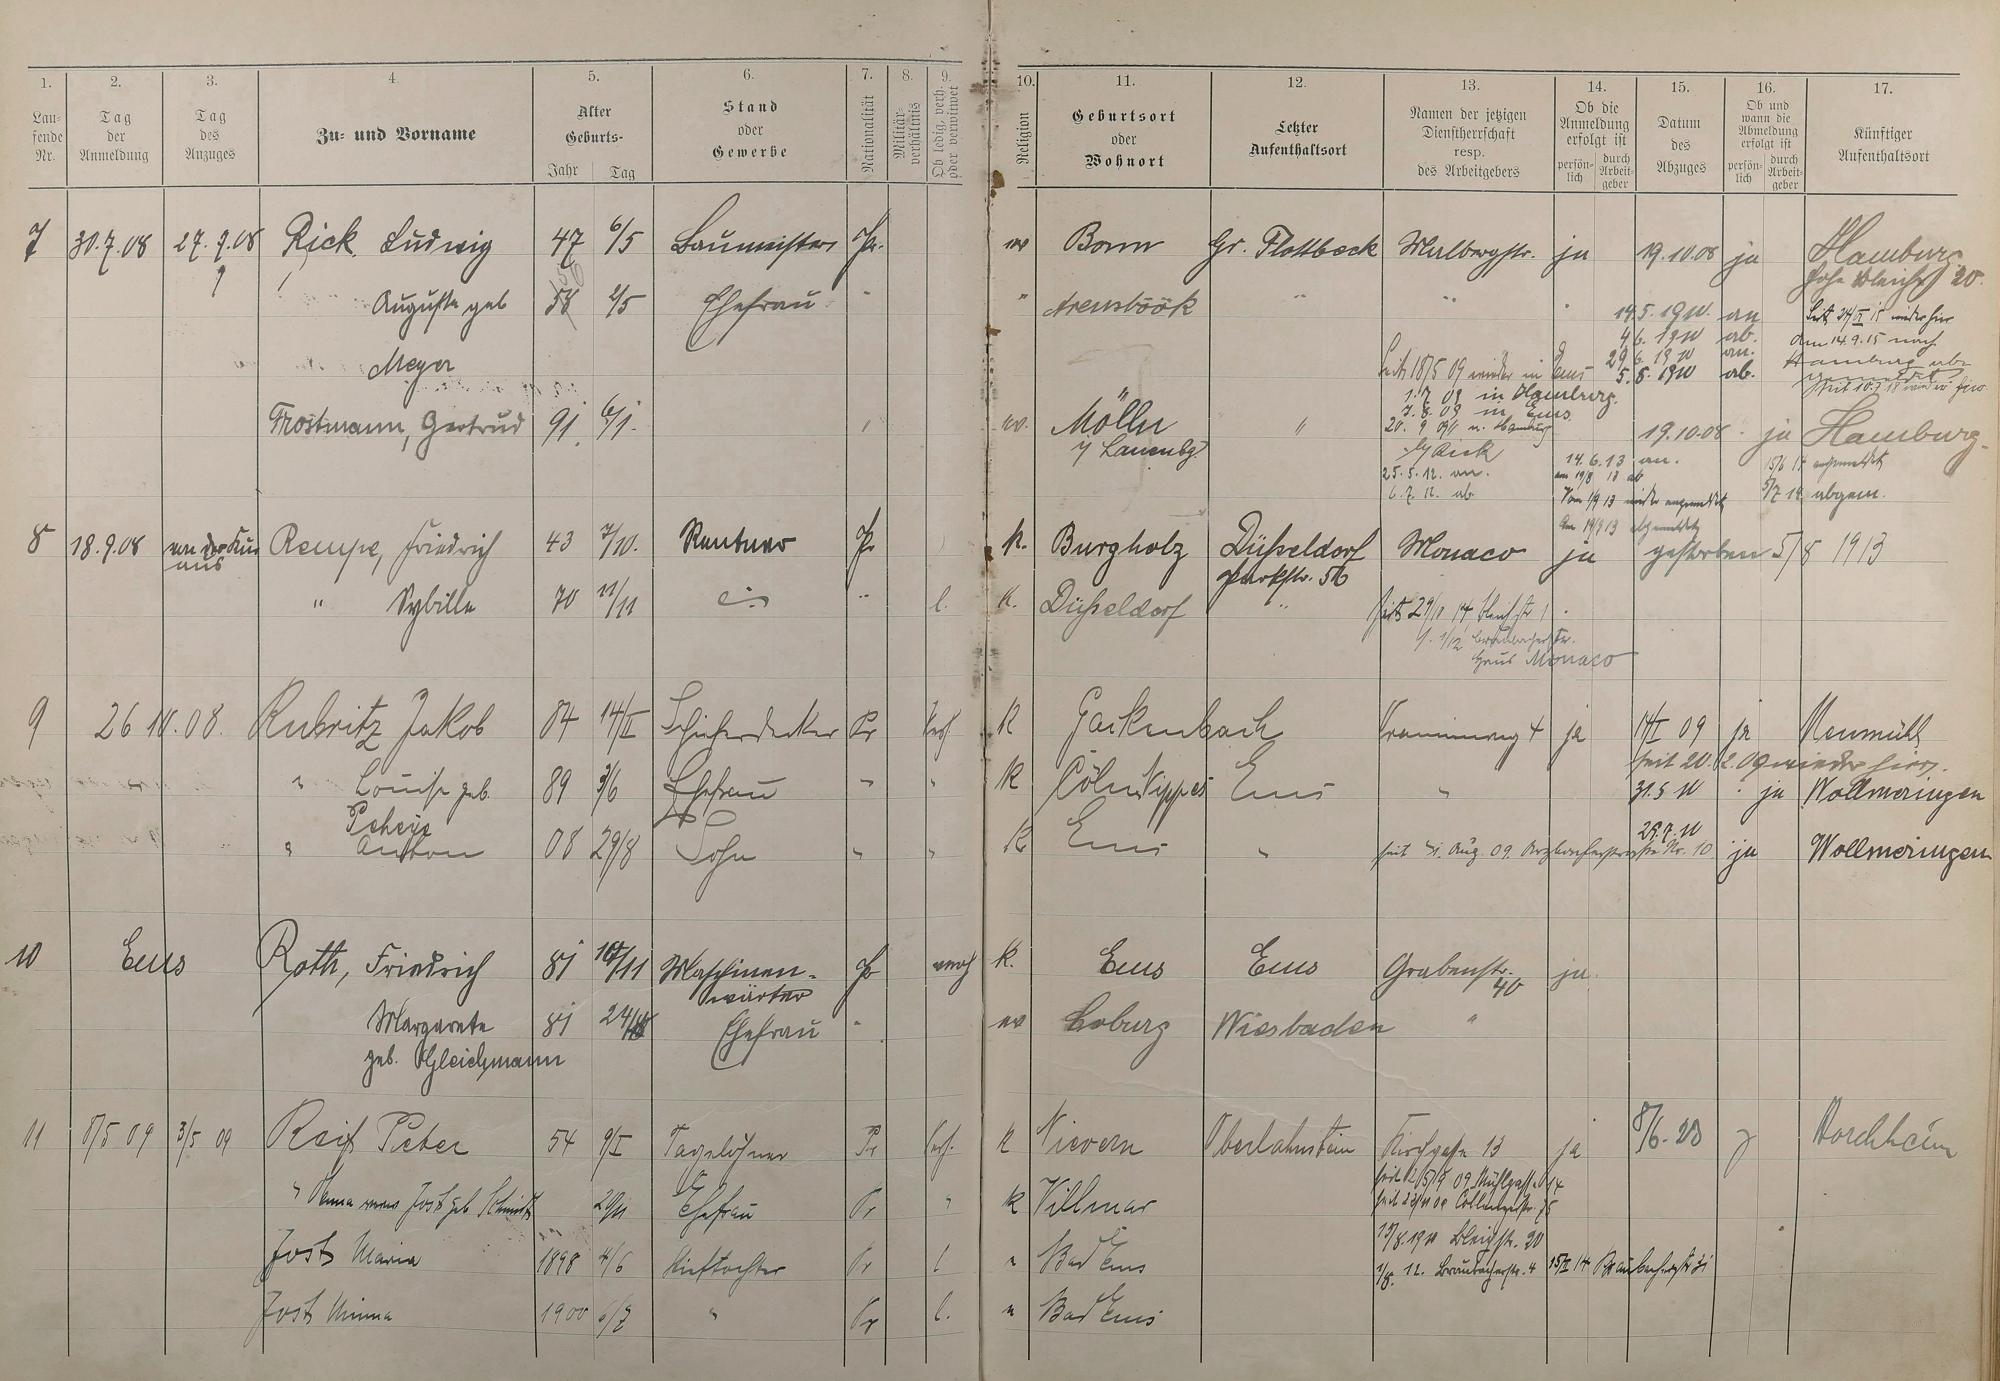 1. 2. 3. 4. 5. 6. 7. 8. 9. 10. 11. 12. 13. 14. 15. 16. 17.
Lau-
fende
Nr.
Tag
der
Anmeldung
Tag
des
Anzuges
Zu- und Vorname
Alter
Geburts-
Jahr Tag
Stand
oder
Gewerbe
Nationalität
Militär-
verhältnis
Ob ledig, verh.
oder verwitwet
Religion
Geburtsort
oder
Wohnort
Letzter
Aufenthaltsort
Namen der jetzigen
Dienstherrschaft
resp.
des Arbeitgebers
Ob die
Anmeldung
erfolgt ist
persön-
lich
durch
Arbeit-
geber
Datum
des
Abzuges
Ob und
wann die
Abmeldung
erfolgt ist
persön-
lich
durch
Arbeit-
geber
Künftiger
Aufenthaltsort
7 30.7.08 27.7.08 Rick Ludwig 47 6/5 Baumeister Pr. ev Bonn Gr. Flottbeck Malbergstr. ja 19.10.08 ja Hamburg
hohe Bleiche 20.
Auguste geb 2/5 Ehefrau " " Arensböök " "
14.5.1910 an
4.6.1910 ab.
29.6.1910 an.
5.8.1910 ab.
wieder hier
am 14.9.15 nach
Hamburg
Meyer
Seit 18/5 09 wieder in Ems
1.7.09 in Hamburg.
7.8.09 in Ems
Trostmann, Gertrud 91 6/1. " ev. Mölln " 19.10.08 ja Hamburg.
i/ Lauenbg.
b/ Rick
25.5.12. an.
6.7.12. ab
14.6.13 an.
am 19/8 13 ab
Vom 1/9 13 wieder angemeldet
Am 19/9 13 abgemeldet
15/6 14 angemeldet
5/7 14 abgem.
8 18.9.08 von der Kur
aus
Rempe, Friedrich 43 7/10. Rentner Pr k. Burgholz Düsseldorf Monaco ja gestorben 5/8 1913
Parkstr. 56
" Sybille 70 11/11 " l. k. Düsseldorf "
1/12
Haus Monaco
9 26 10.08. Rubritz Jakob 84 14/II Schieferdecker Pr Verh K Gackenbach 4 ja 14/I 09 ja Neumühl
seit 20. 2.09 wieder hier.
" Louise geb. 89 3/6 Ehefrau " " K Cöln Nippes Ems " 31.5 10 ja Wollmeringen
29.7.10
" Anton 08 29/8 Sohn " " K Ems " seit Aug 09. Arzbacherstrasse Nr. 10 ja Wollmeringen
10 Ems Roth, Friedrich 81 Maschinen- Pr verh k. Ems Ems Grabenstr. ja.
wärter 40
Margarete 81 Ehefrau " ev Coburg Wiesbaden "
geb. Gleichmann
11 8/5 09 3/5 09 Reif Peter 54 9/I Tagelöhner Pr Verh. K Nievern Oberlahnstein Kirchgasse 13 ja 8/6.20 Horchheim
Jost geb Schmidt Ehefrau Pr " K Villmar
Mühlgasse 14
Jost Maria 1898 4/6 Stieftochter Pr l " Bad Ems
13/8.1911 Bleichstr. 20
1/8. 12. Braubacherstr. 4 Braubacherstr 31
Jost Minna 1900 6/7 " Pr l. " Bad Ems